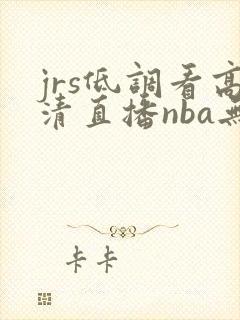 jrs低調看高
清直播nba無
卡卡